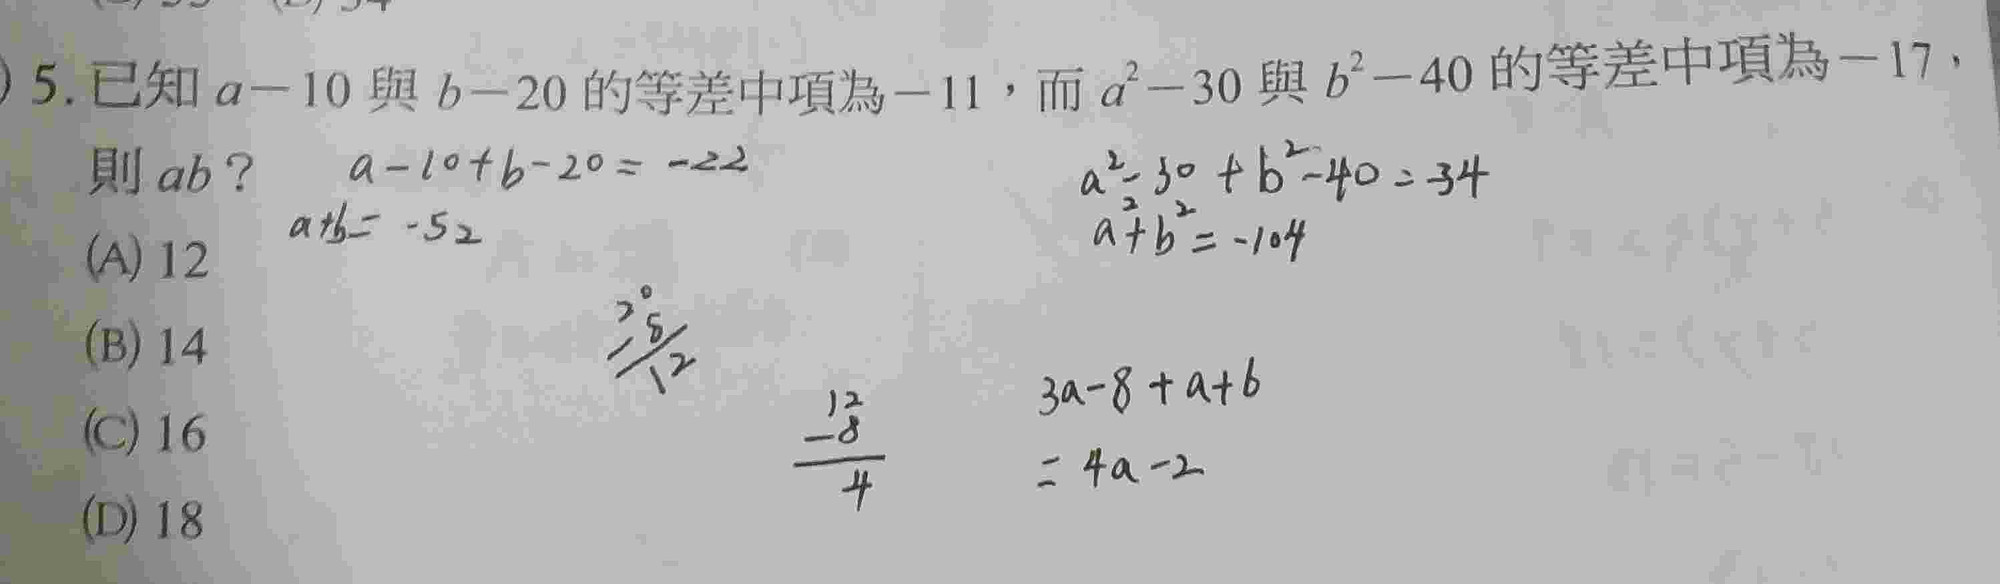 5. 已知 a－10 與 b－20 的等差中項為－11，而 a²－30 與 b²－40 的等差中項為－17，
則 ab？
a-10+b-20 = -22
a²-30+b²-40 = -34
a+b = -52
a²+b² = -104
(A) 12
20
-8
12
(B) 14
12
-8
4
3a-8+a+b
(C) 16
= 4a-2
(D) 18